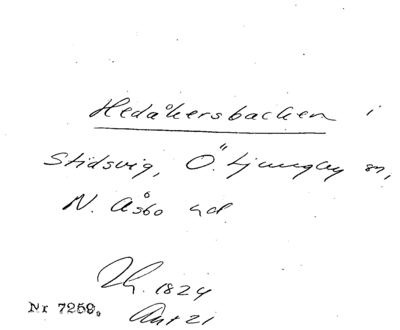 Hedåkersbacken i
Stidsvig, Ö. Ljungby sn,
N. Åsbo hd
Th. 1824
Nr 7259. Ant 21